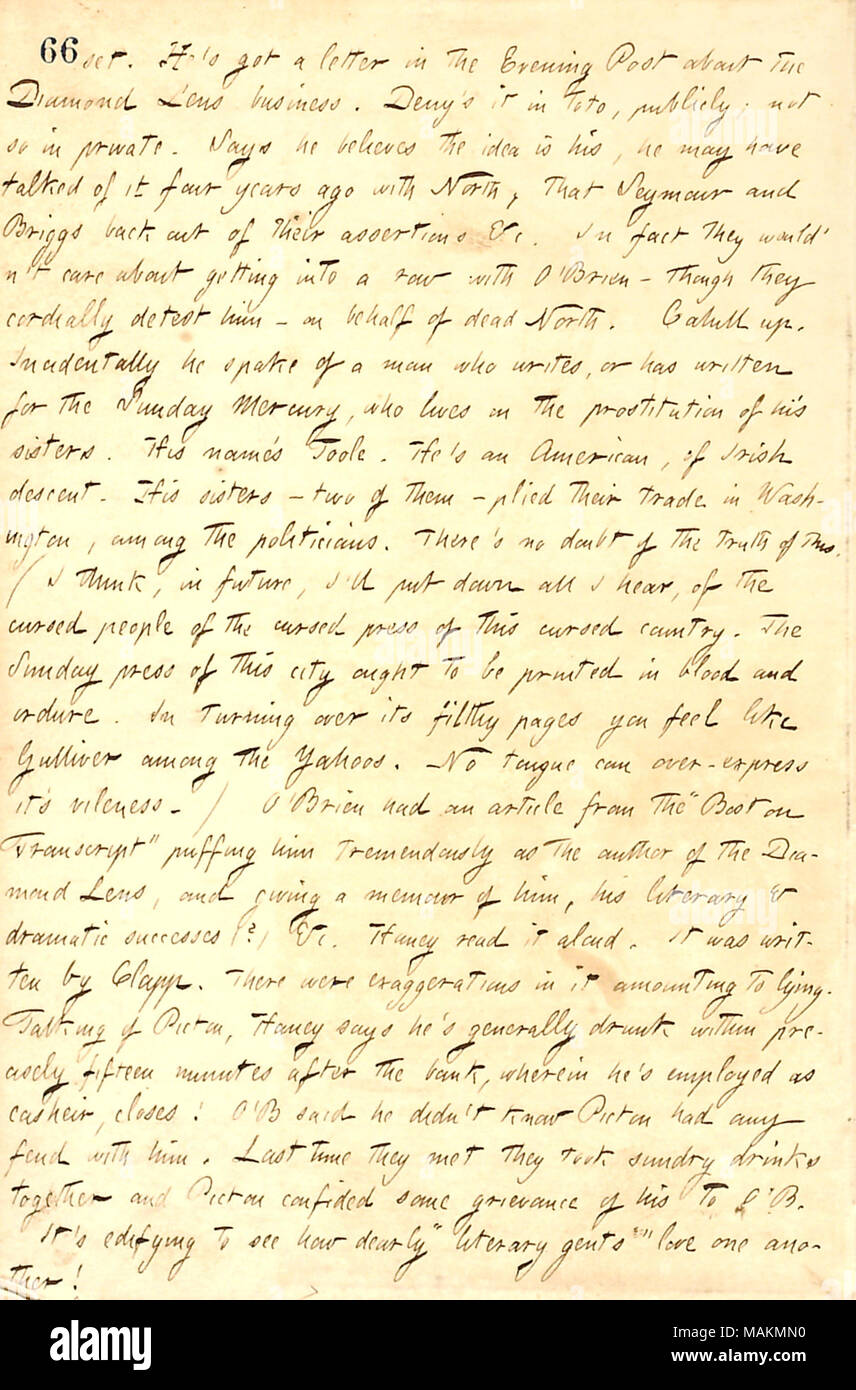 66 set. He's got a letter in the Evening Post about the
Diamond Lens business. Deny's it in toto, publicly; not
so in private. Says he believes the idea is his, he may have
talked of it four years ago with North, that Seymour and
Briggs back out of their assertions &c. In fact they would'
n't care about getting into a row with O'Brien — though they
cordially detest him — on behalf of dead North. Cahill up.
Incidentally he spake of a man who writes, or has written
for the Sunday Mercury, who lives on the prostitution of his
sisters. His name's Toole. He's an American, of Irish
descent. His sisters — two of them — plied their trade in Wash-
ington, among the politicians. There's no doubt of the truth of this.
( I think, in future, I'll put down all I hear, of the
cursed people of the cursed press of this cursed country. The
Sunday press of this city ought to be printed in blood and
ordure. In turning over its filthy pages you feel like
Gulliver among the Yahoos. No tongue can over-express
it's vileness. ) O'Brien had an article from the "Boston
Transcript" puffing him tremendously as the author of the Dia-
mond Lens, and giving a memoir of him, his literary &
dramatic successes (?) &c. Haney read it aloud. It was writ-
ten by Clapp. There were exaggerations in it amounting to lying.
Talking of Picton, Haney says he's generally drunk within pre-
cisely fifteen minutes after the bank, wherein he's employed as
casheir, closes! O'B said he didn't know Picton had any
feud with him. Last time they met they took sundry drinks
together and Picton confided some grievance of his to O'B.
It's edifying to see how dearly "literary gents" love one ano-
ther!
alamy
Image ID: MAKMN0
www.alamy.com